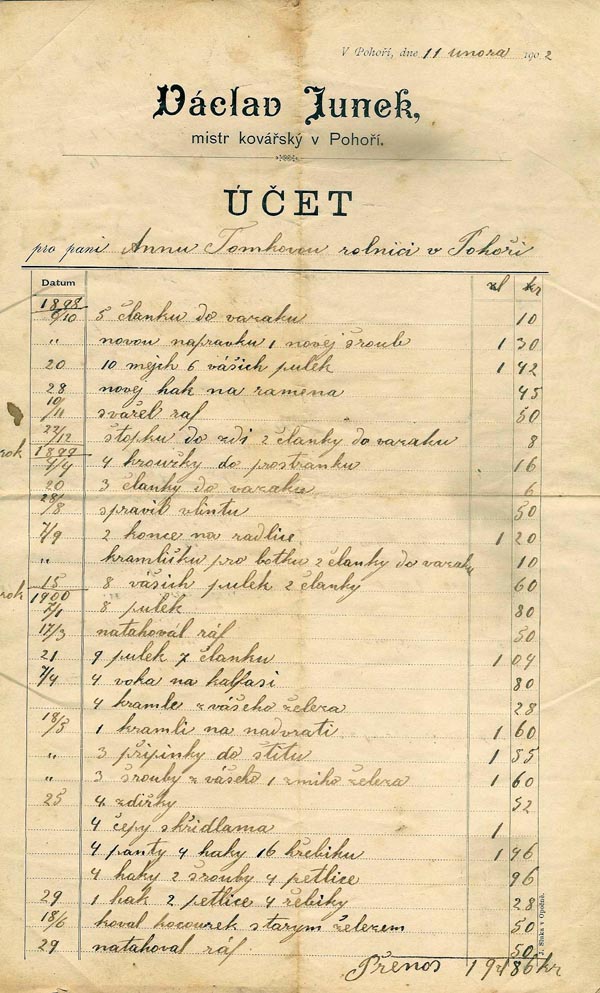 V Pohoří, dne 11 února 1902
Václav Junek,
mistr kovářský v Pohoří.
ÚČET
pro pani Annu Tomkovou rolnici v Pohoři
Datum zl kr
1898
6/10 5 članku do vazaku 10
" novou napravku 1 novej šroub 1 30
20 10 mejch 6 vášich pulek 1 42
28 novej hak na ramena 45
10/11 svařel raf 50
22/12 štopku do zdi 2 članky do vazaku 8
rok 1899
4/4 4 kroužky do prostranku 16
20 3 članky do vazaku 6
28/8 spravil vlintu 50
7/9 2 konce na radlice 1 20
" kramličku pro botku 2 članky do vazaku 10
15 8 vášich pulek 2 članky 60
rok 1900
7/1 8 pulek 80
17/3 natahovál ráf 50
21 9 pulek 7 članku 1 04
7/4 4 voka na kalfasi 80
4 kramle z vášeho železa 28
18/5 1 kramli na nadvrati 1 60
" 3 připinky do štitu 1 55
" 3 šrouby z vášeho 1 zmiho železa 1 60
25 4 zdiřky 52
4 čepy skřidlama 1
4 panty 4 haky 16 hřebiku 1 96
4 haky 2 šrouby 4 petlice 96
29 1 hak 2 petlice 4 řebiky 28
18/6 koval kocourek starym železem 50
29 natahoval ráf 50
Přenos 19 zl 86 kr
J. Sluka v Opočně.